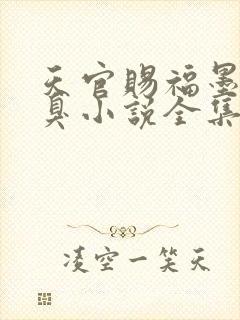 天官赐福墨
真小说全集
凌空一笑天